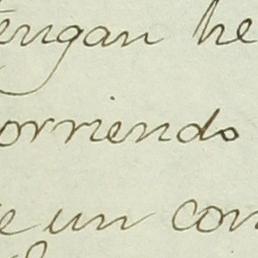 tengan he
orriendo
e un con